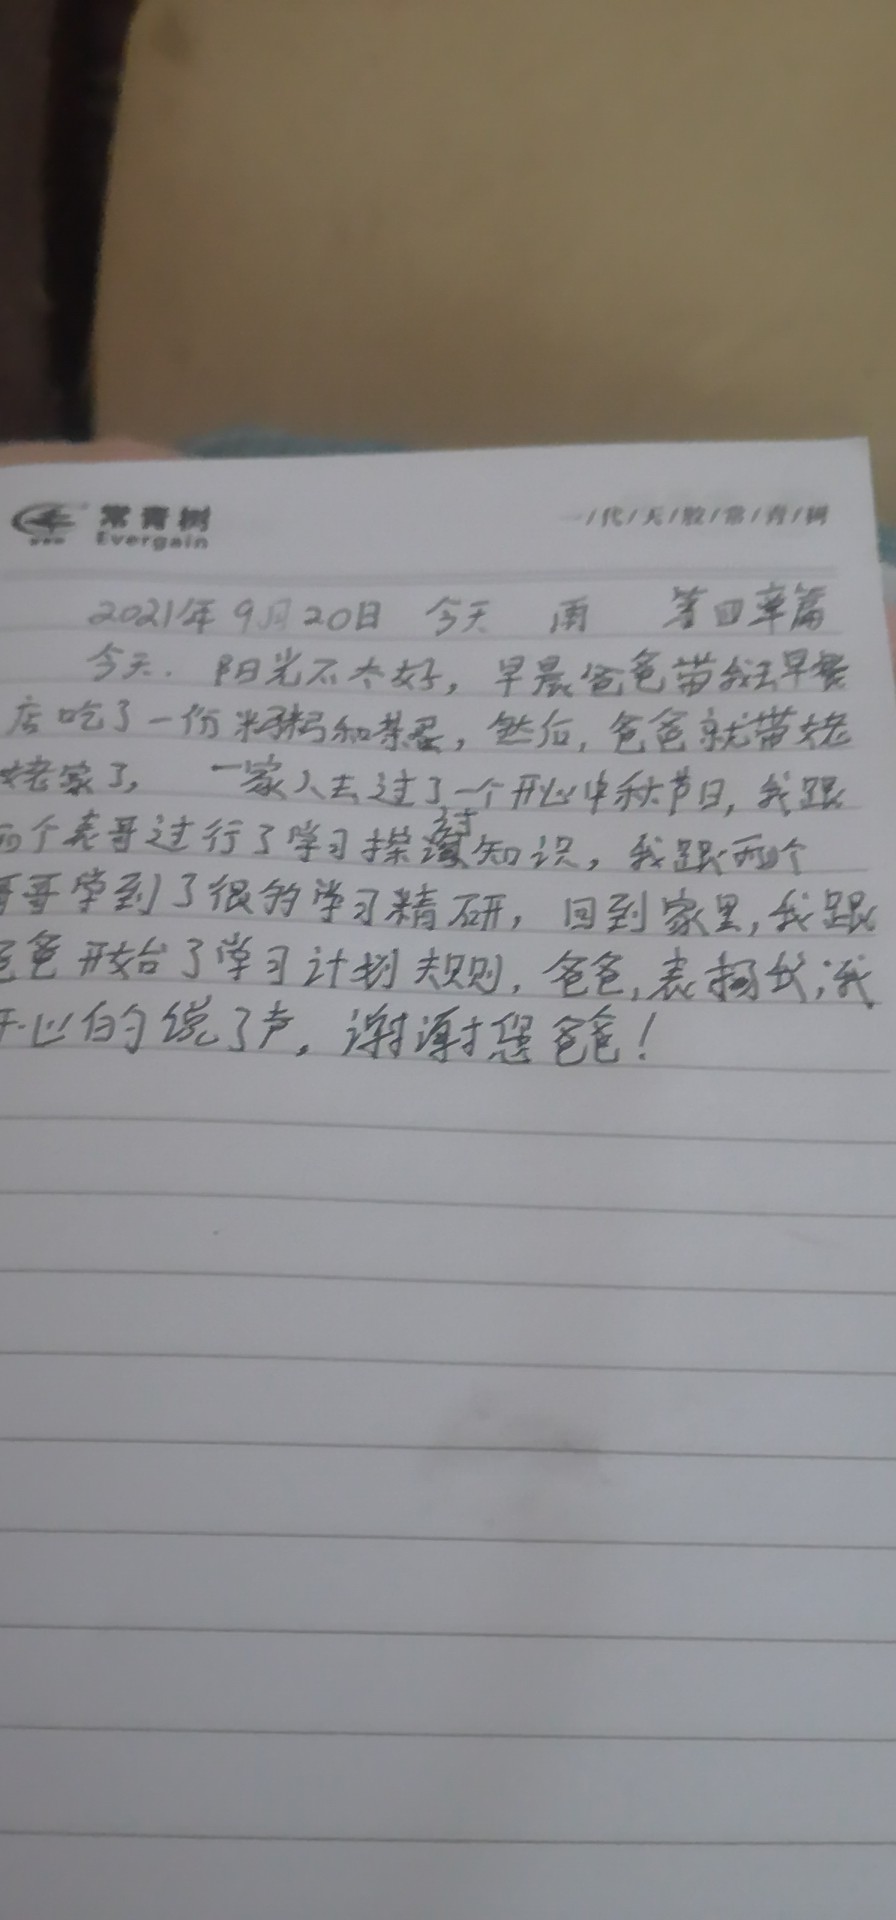 常青树
Evergain
一/代/天/骰/常/青/树
2021年9月20日 今天 雨 第四章篇
今天. 阳光不太好，早晨爸爸带我去早餐
店吃了一份米粥和茶蛋，然后，爸爸就带姥
姥家了， 一家人去过了一个开心中秋节日，我跟
两个表哥过行了学习探讨知识，我跟两个
哥哥学到了很的学习精研，回到家里，我跟
爸爸开始了学习计划规则，爸爸，表扬我，我
开心的说了声，谢谢您爸爸！